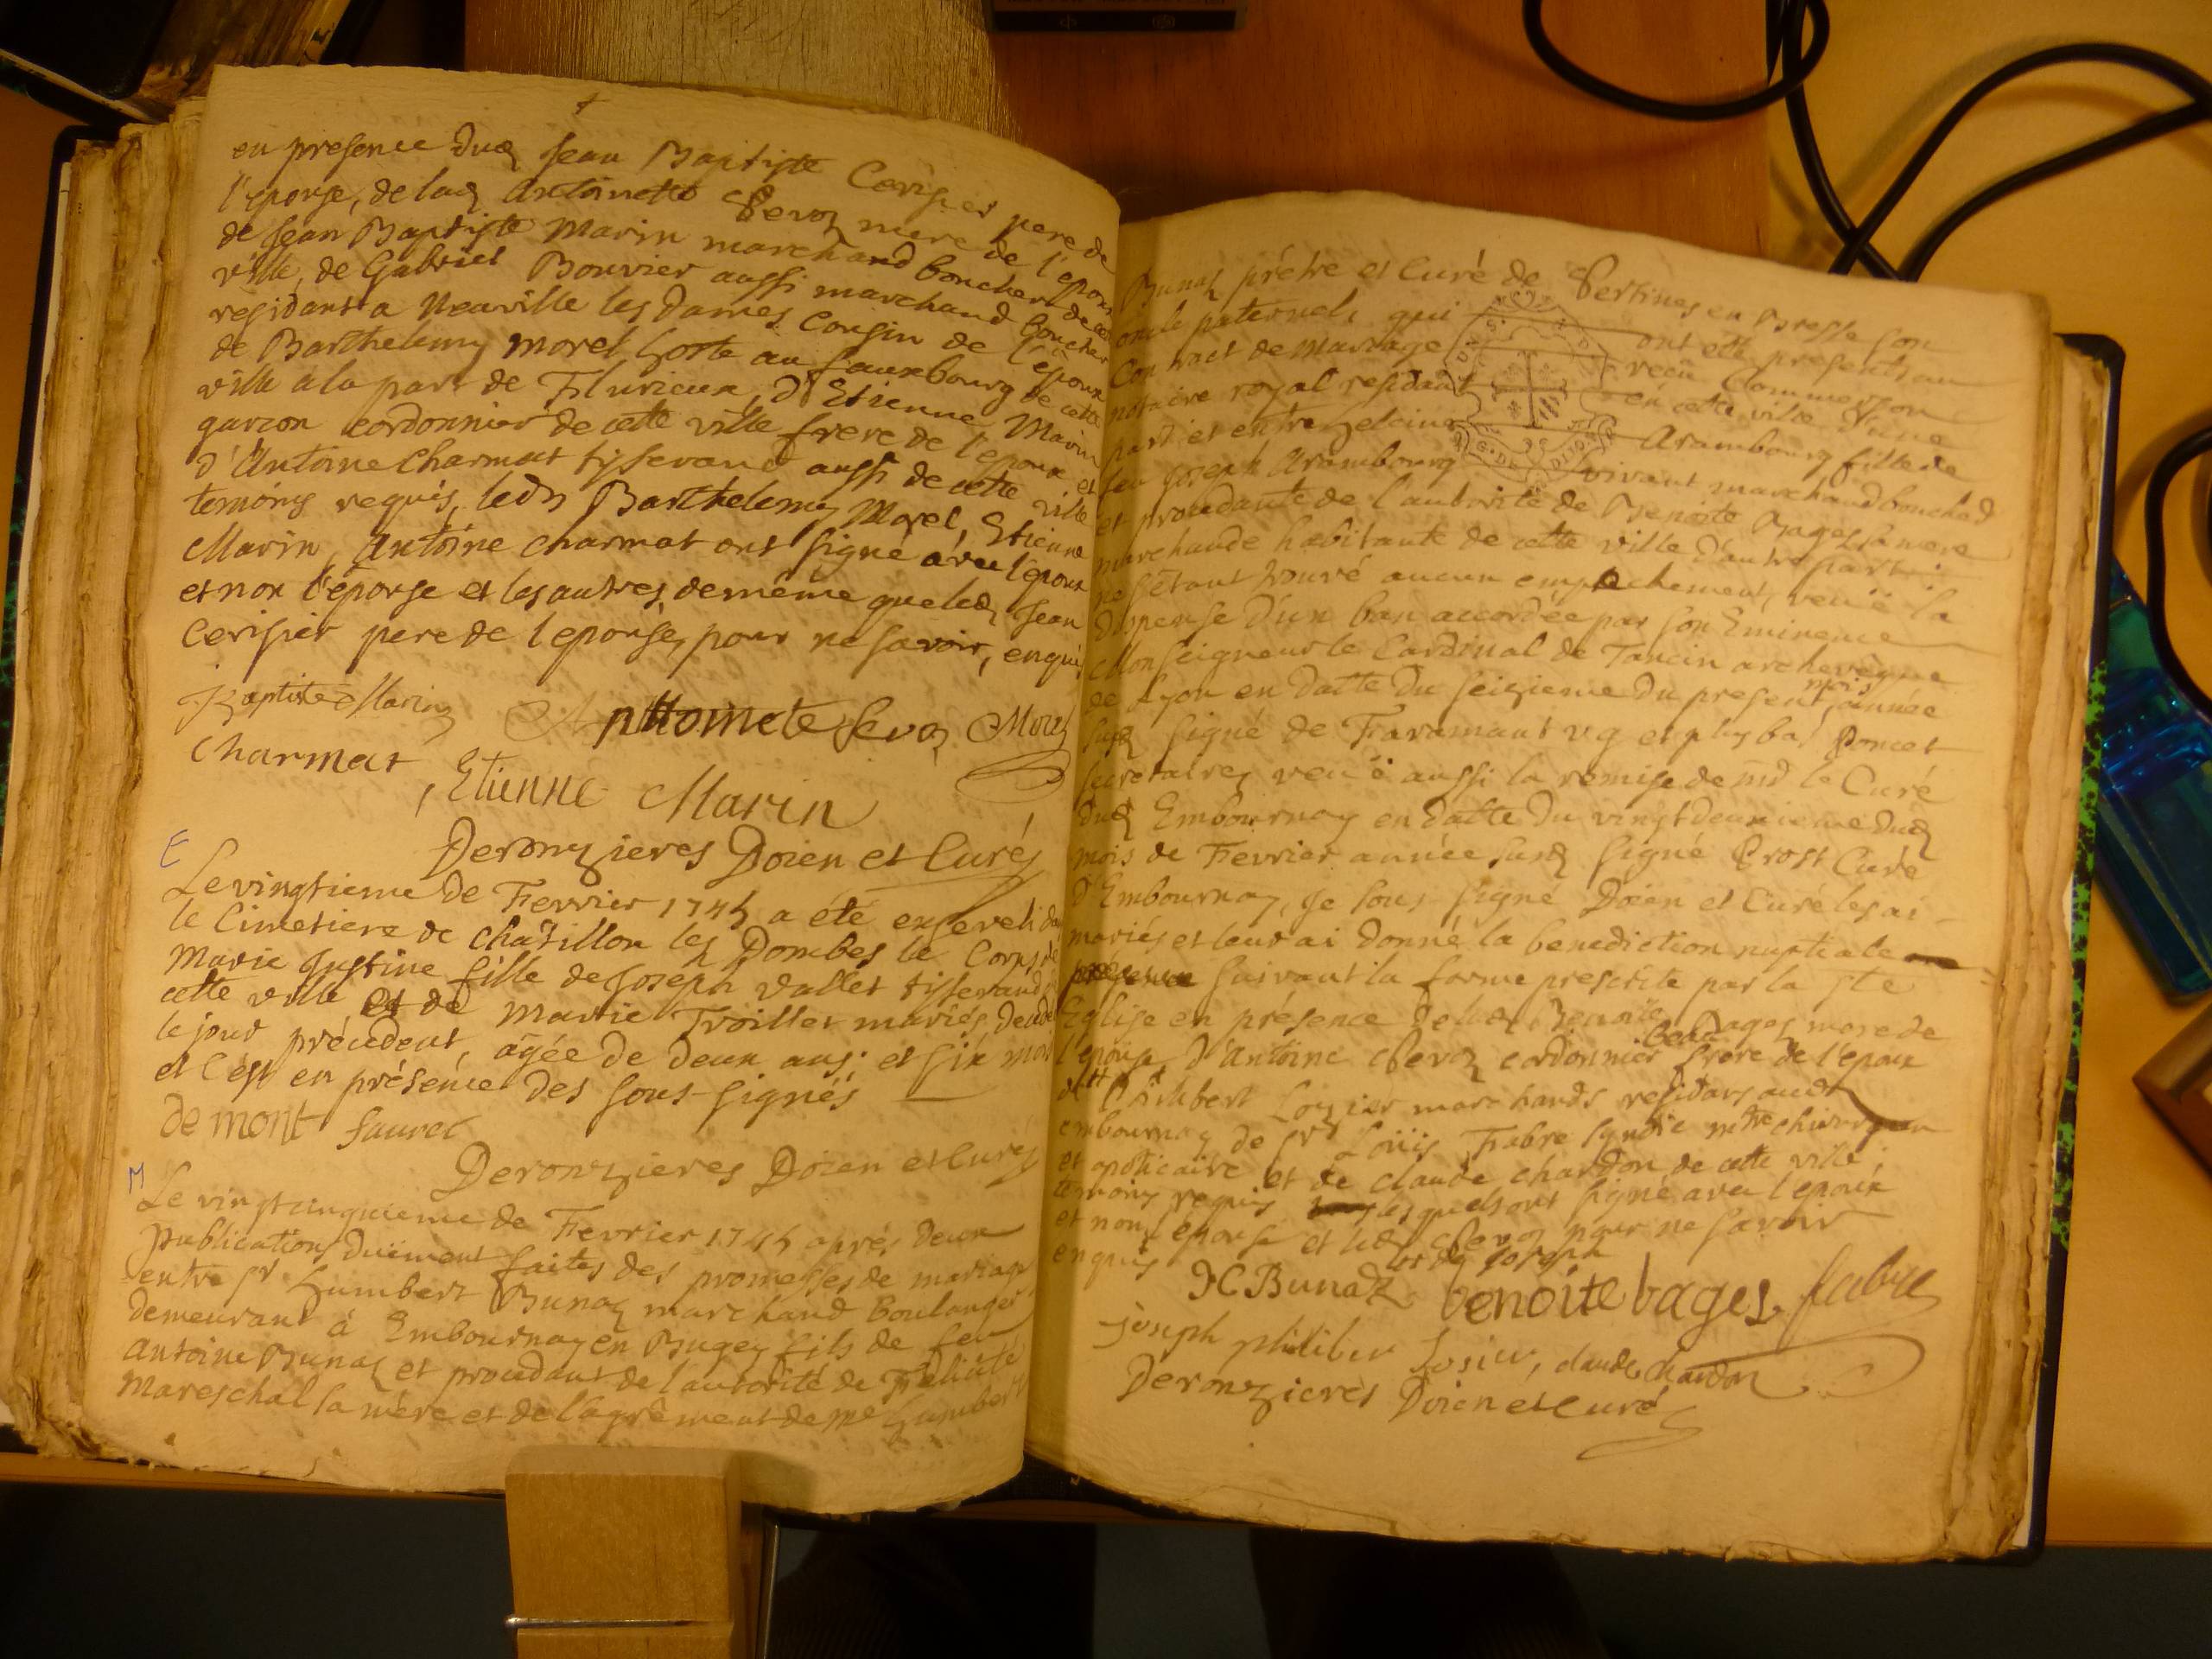 en presence dud Jean Baptiste Cerisier pere de
l'epouse, de lad Antoinette Sevoz mere de l'epoux
de Jean Baptiste Marin marchand boucher de cette
ville, de Gabriel Bouvier aussi marchand boucher
residant a Neuville les Dames cousin de l'epoux
de Barthelemy Morel hoste au fauxbourg de cette
ville a la part de Flurieux, d'Etienne Marin
garçon cordonnier de cette ville frere de l'epoux et
d'Antoine Charmat tisserand aussi de cette ville
temoins requis, led Barthelemy Morel, Etienne
Marin, Antoine Charmat ont signé avec l'epoux
et non l'épouse et les autres de même que led Jean
Cerisier pere de l'epouse, pour ne savoir, enquis
Baptiste Marin Anttoinete Sevoz Morel
Charmat, Etienne Marin
Deronzieres Doien et Curé
E
Le vingtieme de Fevrier 1745 a été enseveli dans
le Cimetiere de Chatillon les Dombes le Corps de
Marie Justine fille de Joseph Vallet tisserand de
cette ville et de Marie Troillet mariés, decedé
le jour précédent, âgée de deux ans; et six mois
et c'est en présence des sous-signés
de mont fauret
Deronzieres Doien et curé
M
Le vingtcinquieme de Fevrier 1745 après deux
publications duëment faites des promesses de mariage
entre sr humbert Bunaz marchand boulanger
demeurant à Embournay en Bugey fils de feu
Antoine Bunaz et procedant de l'autorité de Felicité
Mareschal sa mère et de l'agrément de me humbert
Bunaz prêtre et Curé de Sertines en Bresse son
oncle paternel, qui ont esté presents au
Contract de Mariage reçû Commerson
notaire royal residant en cette ville d'une
part et entre Arambourg fille de
feu Joseph Arambourg vivant marchand boucher
et procedante de l'autorité de Benoite Bages sa mere
marchande habitante de cette ville d'autre part
ne s'étant trouvé aucun empechement, veuë la
dispense d'un ban accordée par son Eminence
Monseigneur le Cardinal de Tancin archevêque
de Lyon en datte du seizieme du present mois, année
susd signé de Faramant vg et plus bas Poncet
secretaire, veuë aussi la remise de md le Curé
dud Embournay en datte du vingtdeuxieme dud
mois de Fevrier année susd signé Prost Curé
d'Embournay, Je sous signé Doien et Curé les ai
mariés et leur ai donné la benediction nuptiale
suivant la forme prescrite par la ste
Eglise en présence de lad Benoite Bages mere de
l'epouse d'Antoine Chevoz cordonnier beau frere de l'epoux
Philibert Lozier marchands residans aud
embournay de sr Loüis Fabre syndic mtre chirurgien
et apoticaire et de claude chardon de cette ville
temoins requis lesquels ont signé avec l'epoux
et non l'epouse et led Chevoz pour ne savoir
enquis Joseph
H Bunaz benoite bages fabre
joseph philiber Losier, claude chardon
Deronzieres Doien et curé